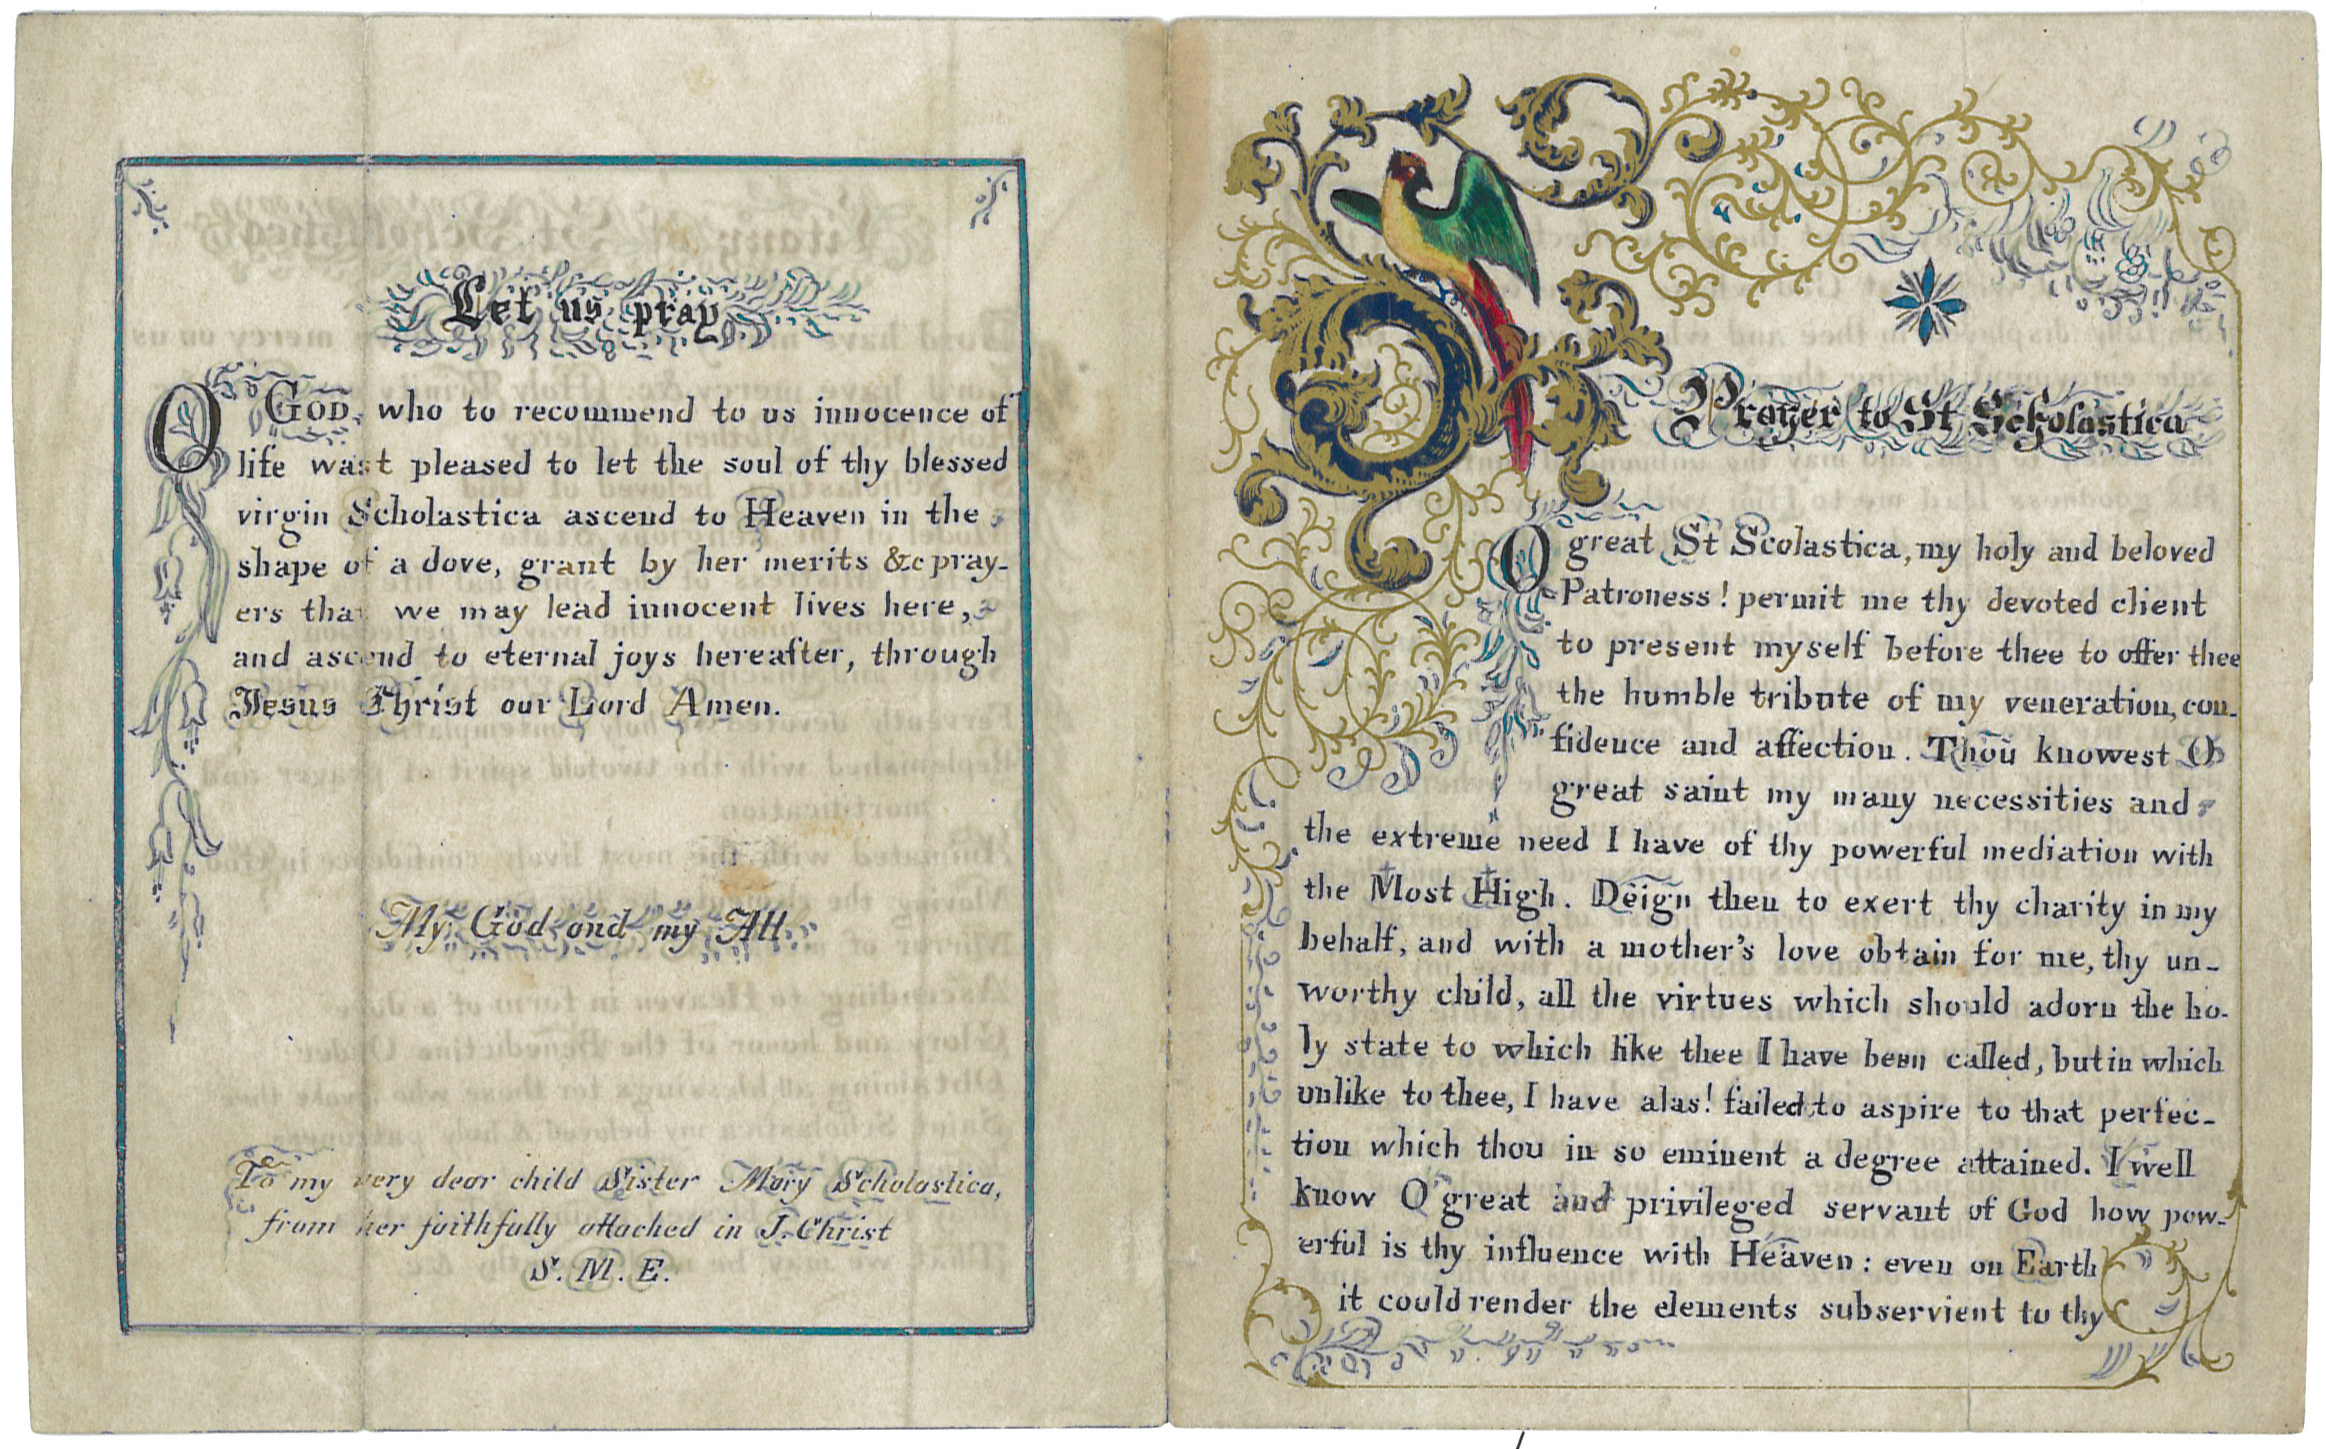 Let us pray
O GOD, who to recommend to us innocence of
life wast pleased to let the soul of thy blessed
virgin Scholastica ascend to Heaven in the
shape of a dove, grant by her merits &c pray-
ers that we may lead innocent lives here,
and ascend to eternal joys hereafter, through
Jesus Christ our Lord Amen.
My God and my All
To my very dear child Sister Mary Scholastica,
from her faithfully attached in J. Christ
S. M. E.
Prayer to St Scholastica
O great St Scolastica, my holy and beloved
Patroness! permit me thy devoted client
to present myself before thee to offer thee
the humble tribute of my veneration, con-
fidence and affection. Thou knowest O
great saint my many necessities and
the extreme need I have of thy powerful mediation with
the Most High. Deign then to exert thy charity in my
behalf, and with a mother's love obtain for me, thy un-
worthy child, all the virtues which should adorn the ho-
ly state to which like thee I have been called, but in which
unlike to thee, I have alas! failed to aspire to that perfec-
tion which thou in so eminent a degree attained. I well
know O great and privileged servant of God how pow-
erful is thy influence with Heaven: even on Earth
it could render the elements subservient to thy